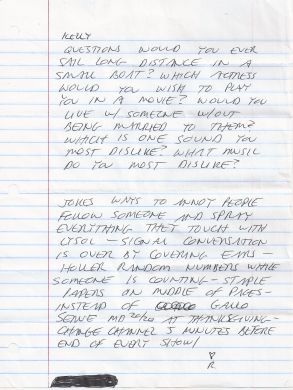 KELLY
QUESTIONS WOULD YOU EVER
SAIL LONG DISTANCE IN A
SMALL BOAT? WHICH ACTRESS
WOULD YOU WISH TO PLAY
YOU IN A MOVIE? WOULD YOU
LIVE W/ SOMEONE W/OUT
BEING MARRIED TO THEM?
WHICH IS ONE SOUND YOU
MOST DISLIKE? WHAT MUSIC
DO YOU MOST DISLIKE?
JOKES WAYS TO ANNOY PEOPLE
FOLLOW SOMEONE AND SPRAY
EVERYTHING THEY TOUCH WITH
LYSOL - SIGNAL CONVERSATION
IS OVER BY COVERING EARS -
HOLLER RANDOM NUMBERS WHILE
SOMEONE IS COUNTING - STAPLE
PAPERS ON MIDDLE OF PAGES -
INSTEAD OF GALLO
SERVE MD 20/20 AT THANKSGIVING -
CHANGE CHANNEL 5 MINUTES BEFORE
END OF EVERY SHOW!
R